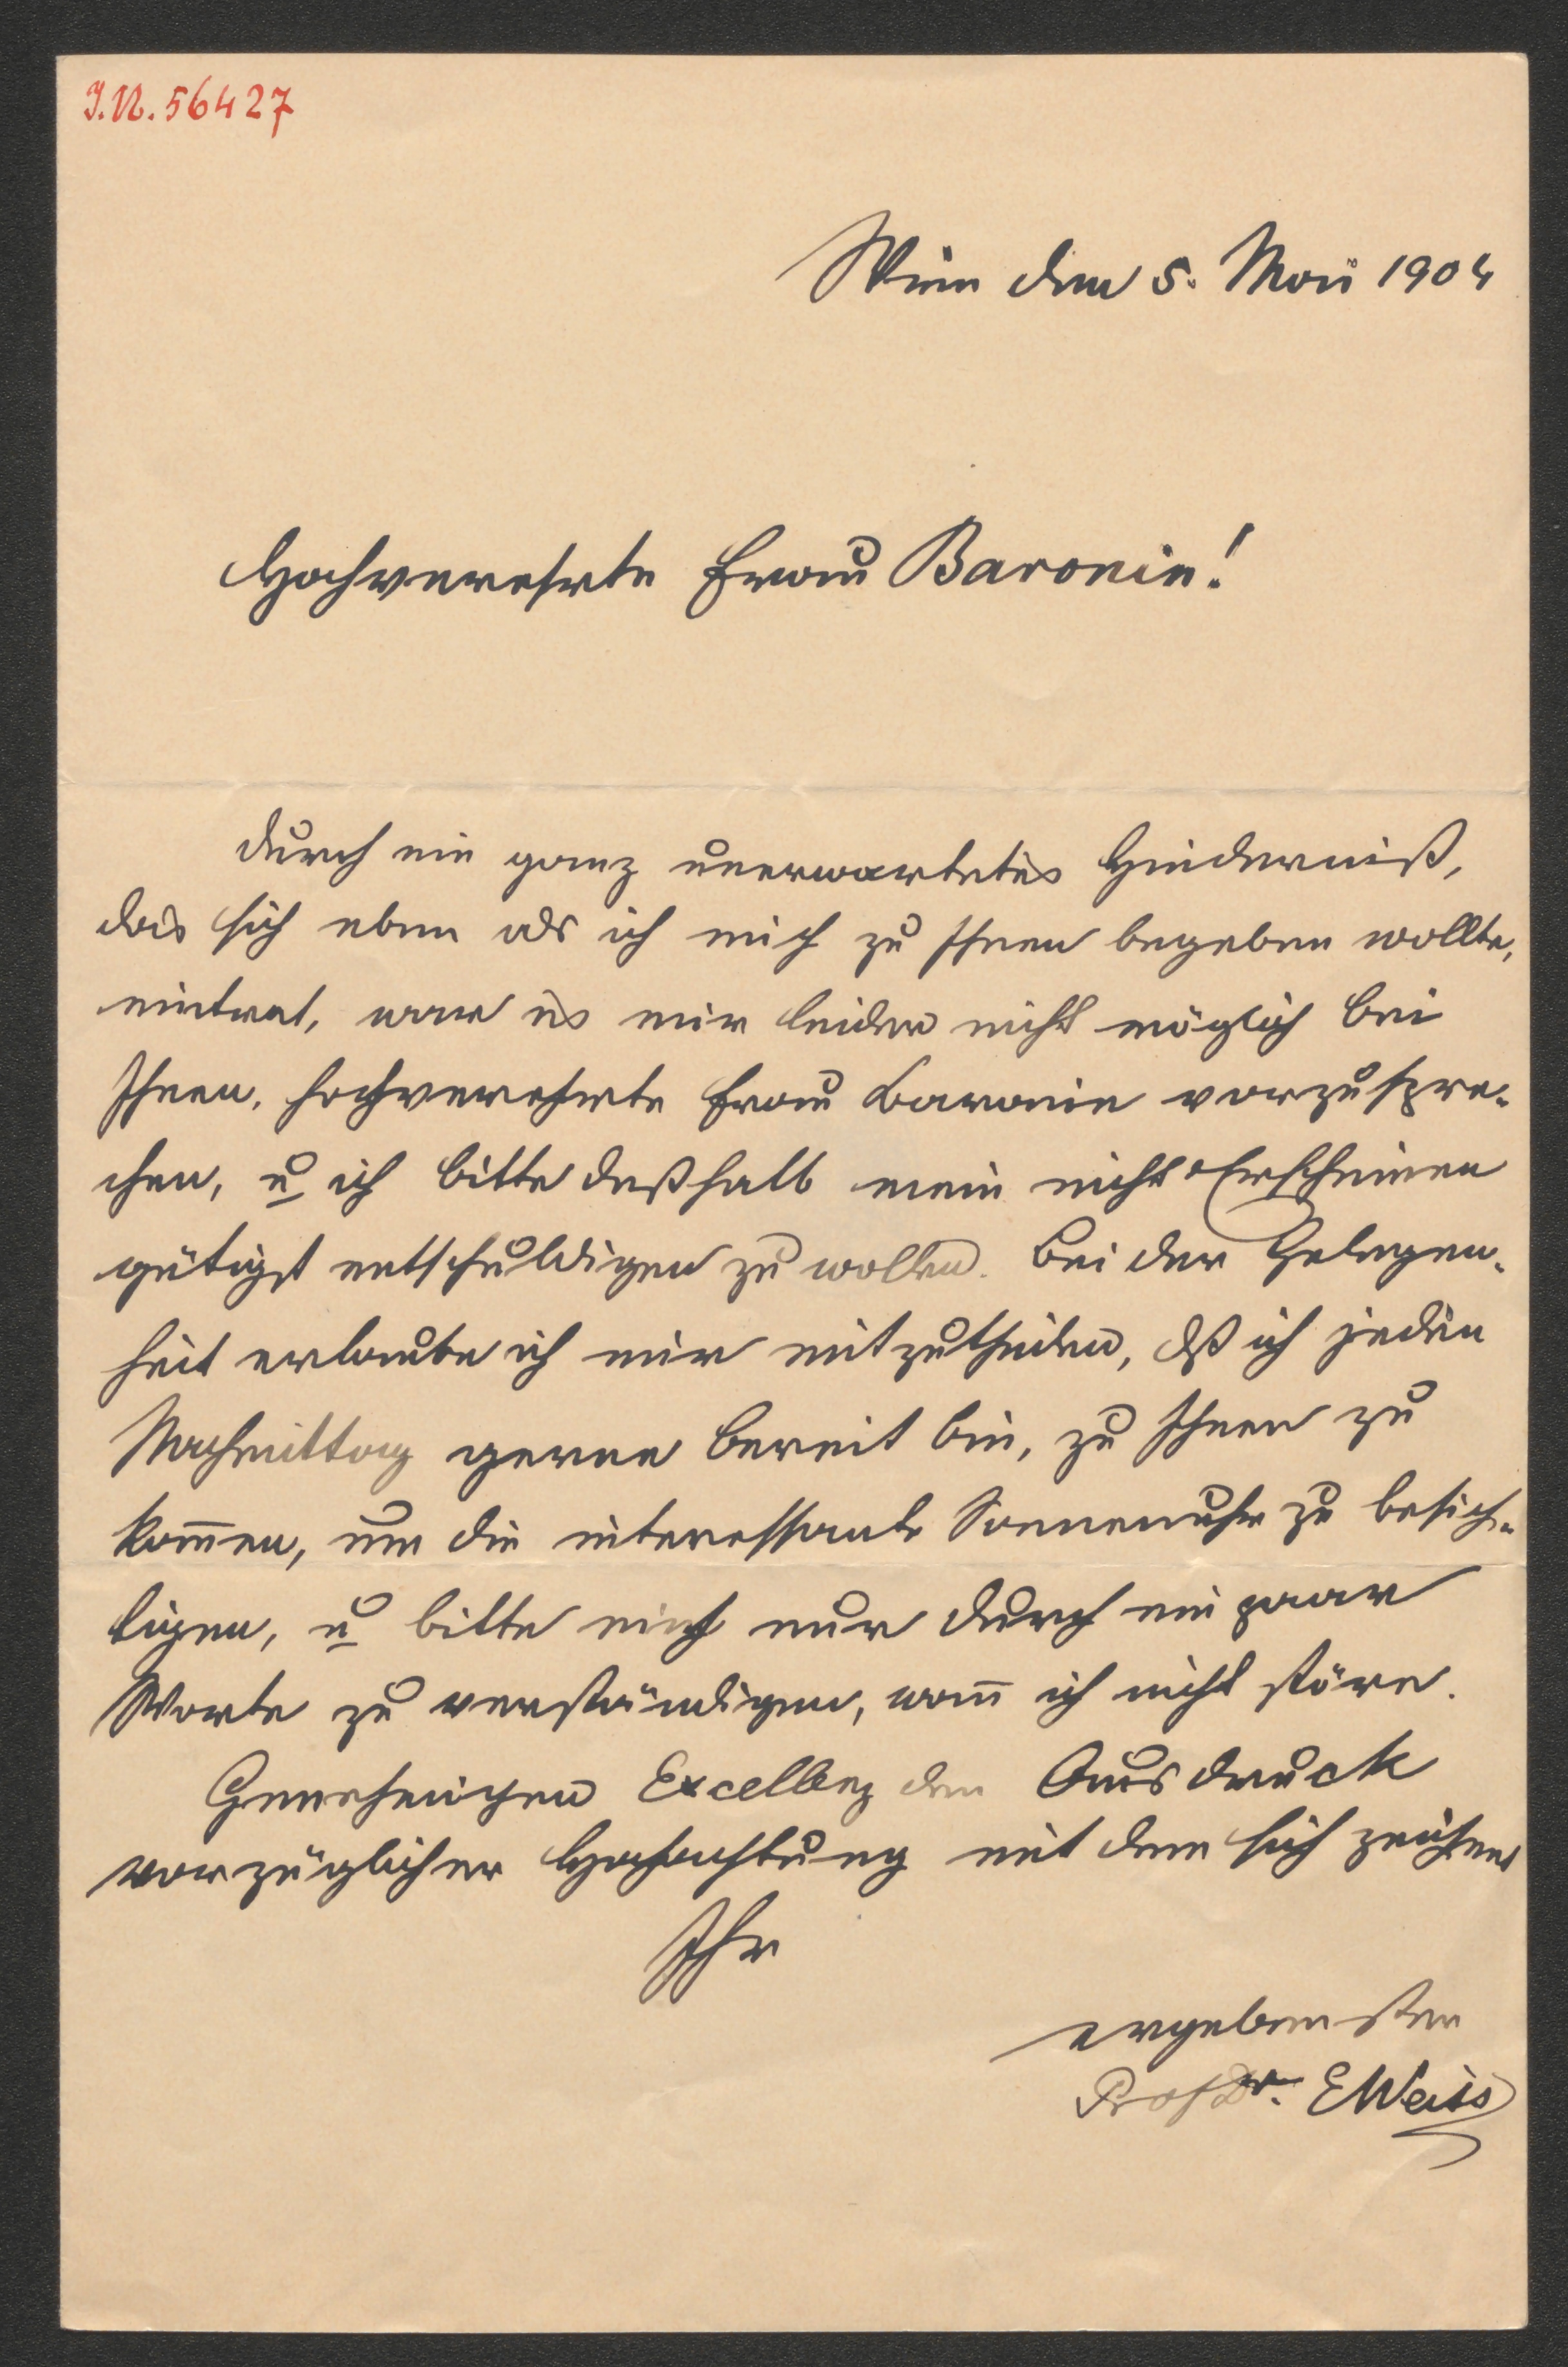 I.N. 56427
Wien den 5. Mai 1904
Hochverehrte Frau Baronin!
Durch ein ganz unerwartetes Hinderniß,
das sich eben als ich mich zu Ihnen begeben wollte,
eintrat, war es mir leider nicht möglich bei
Ihnen, hochverehrte Frau Baronin vorzuspre-
chen, u ich bitte deßhalb mein nicht Erscheinen
gütigst entschuldigen zu wollen. Bei der Gelegen-
heit erlaube ich mir mitzutheilen, dß ich jeden
Nachmittag gerne bereit bin, zu Ihnen zu
kom̄en, um die interessante Sonnenuhr zu besich-
tigen, u bitte mich nur durch ein paar
Worte zu verständigen, wan̄ ich nicht störe.
Genehmigen Excellenz den Ausdruck
vorzüglicher Hochachtung mit dem sich zeichnet
Ihr
ergebenster
Prof Dr. EWeiss